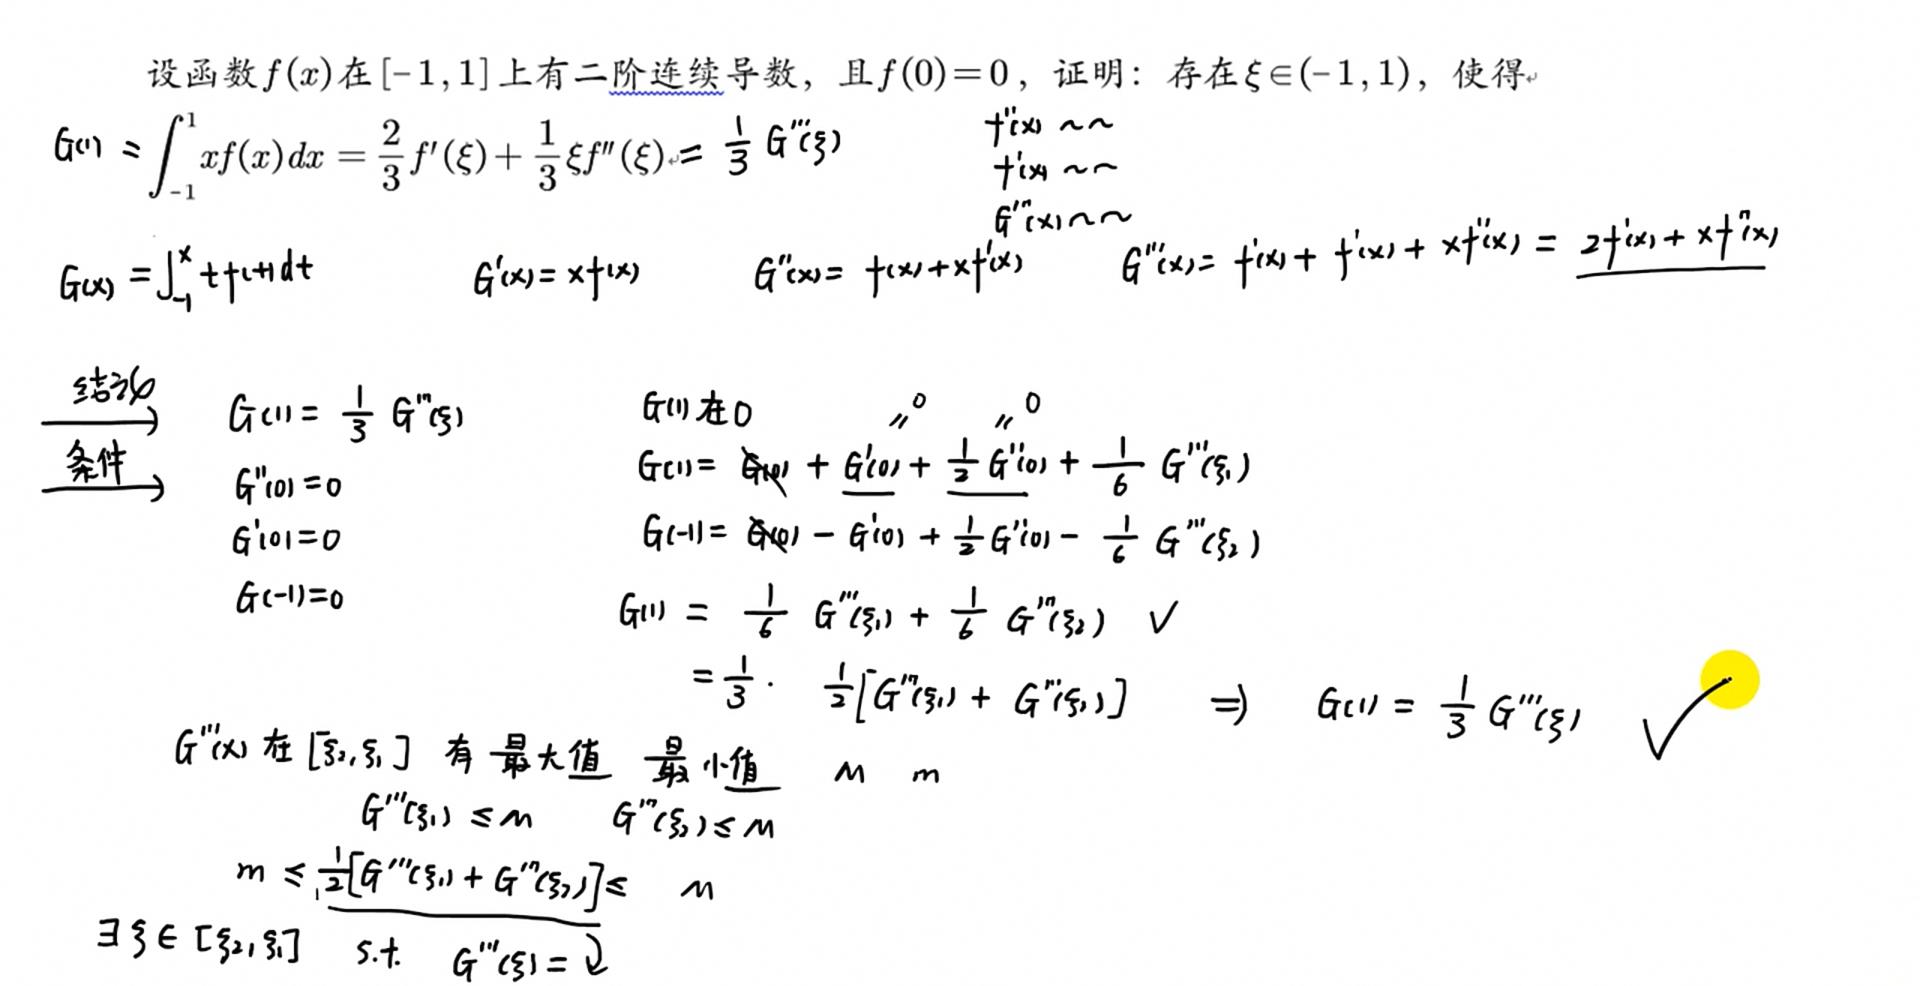 设函数f(x)在[-1,1]上有二阶连续导数，且f(0)=0，证明：存在ξ∈(-1,1)，使得
G(1) = ∫_{-1}^{1} xf(x)dx = 2/3 f'(ξ) + 1/3 ξf''(ξ) = 1/3 G'''(ξ)
f''(x) ~~
f'(x) ~~
G'''(x) ~~
G(x) = ∫_{-1}^{x} tf(t)dt G'(x) = xf(x) G''(x) = f(x)+xf'(x) G'''(x) = f'(x) + f'(x) + xf''(x) = 2f'(x) + xf''(x)
结论 G(1) = 1/3 G'''(ξ)
条件 G''(0)=0
G'(0)=0
G(-1)=0
G(1)在0
=0 =0
G(1) = G(0) + G'(0) + 1/2 G''(0) + 1/6 G'''(ξ₁)
G(-1) = G(0) - G'(0) + 1/2 G''(0) - 1/6 G'''(ξ₂)
G(1) = 1/6 G'''(ξ₁) + 1/6 G'''(ξ₂) ✓
= 1/3 · 1/2 [G'''(ξ₁) + G'''(ξ₂)] ⇒ G(1) = 1/3 G'''(ξ) ✓
G'''(x) 在 [ξ₂,ξ₁] 有 最大值 最小值 M m
G'''(ξ₁) ≤ M G'''(ξ₂) ≤ M
m ≤ 1/2 [G'''(ξ₁) + G'''(ξ₂)] ≤ M
∃ξ∈[ξ₂,ξ₁] s.t. G'''(ξ) =